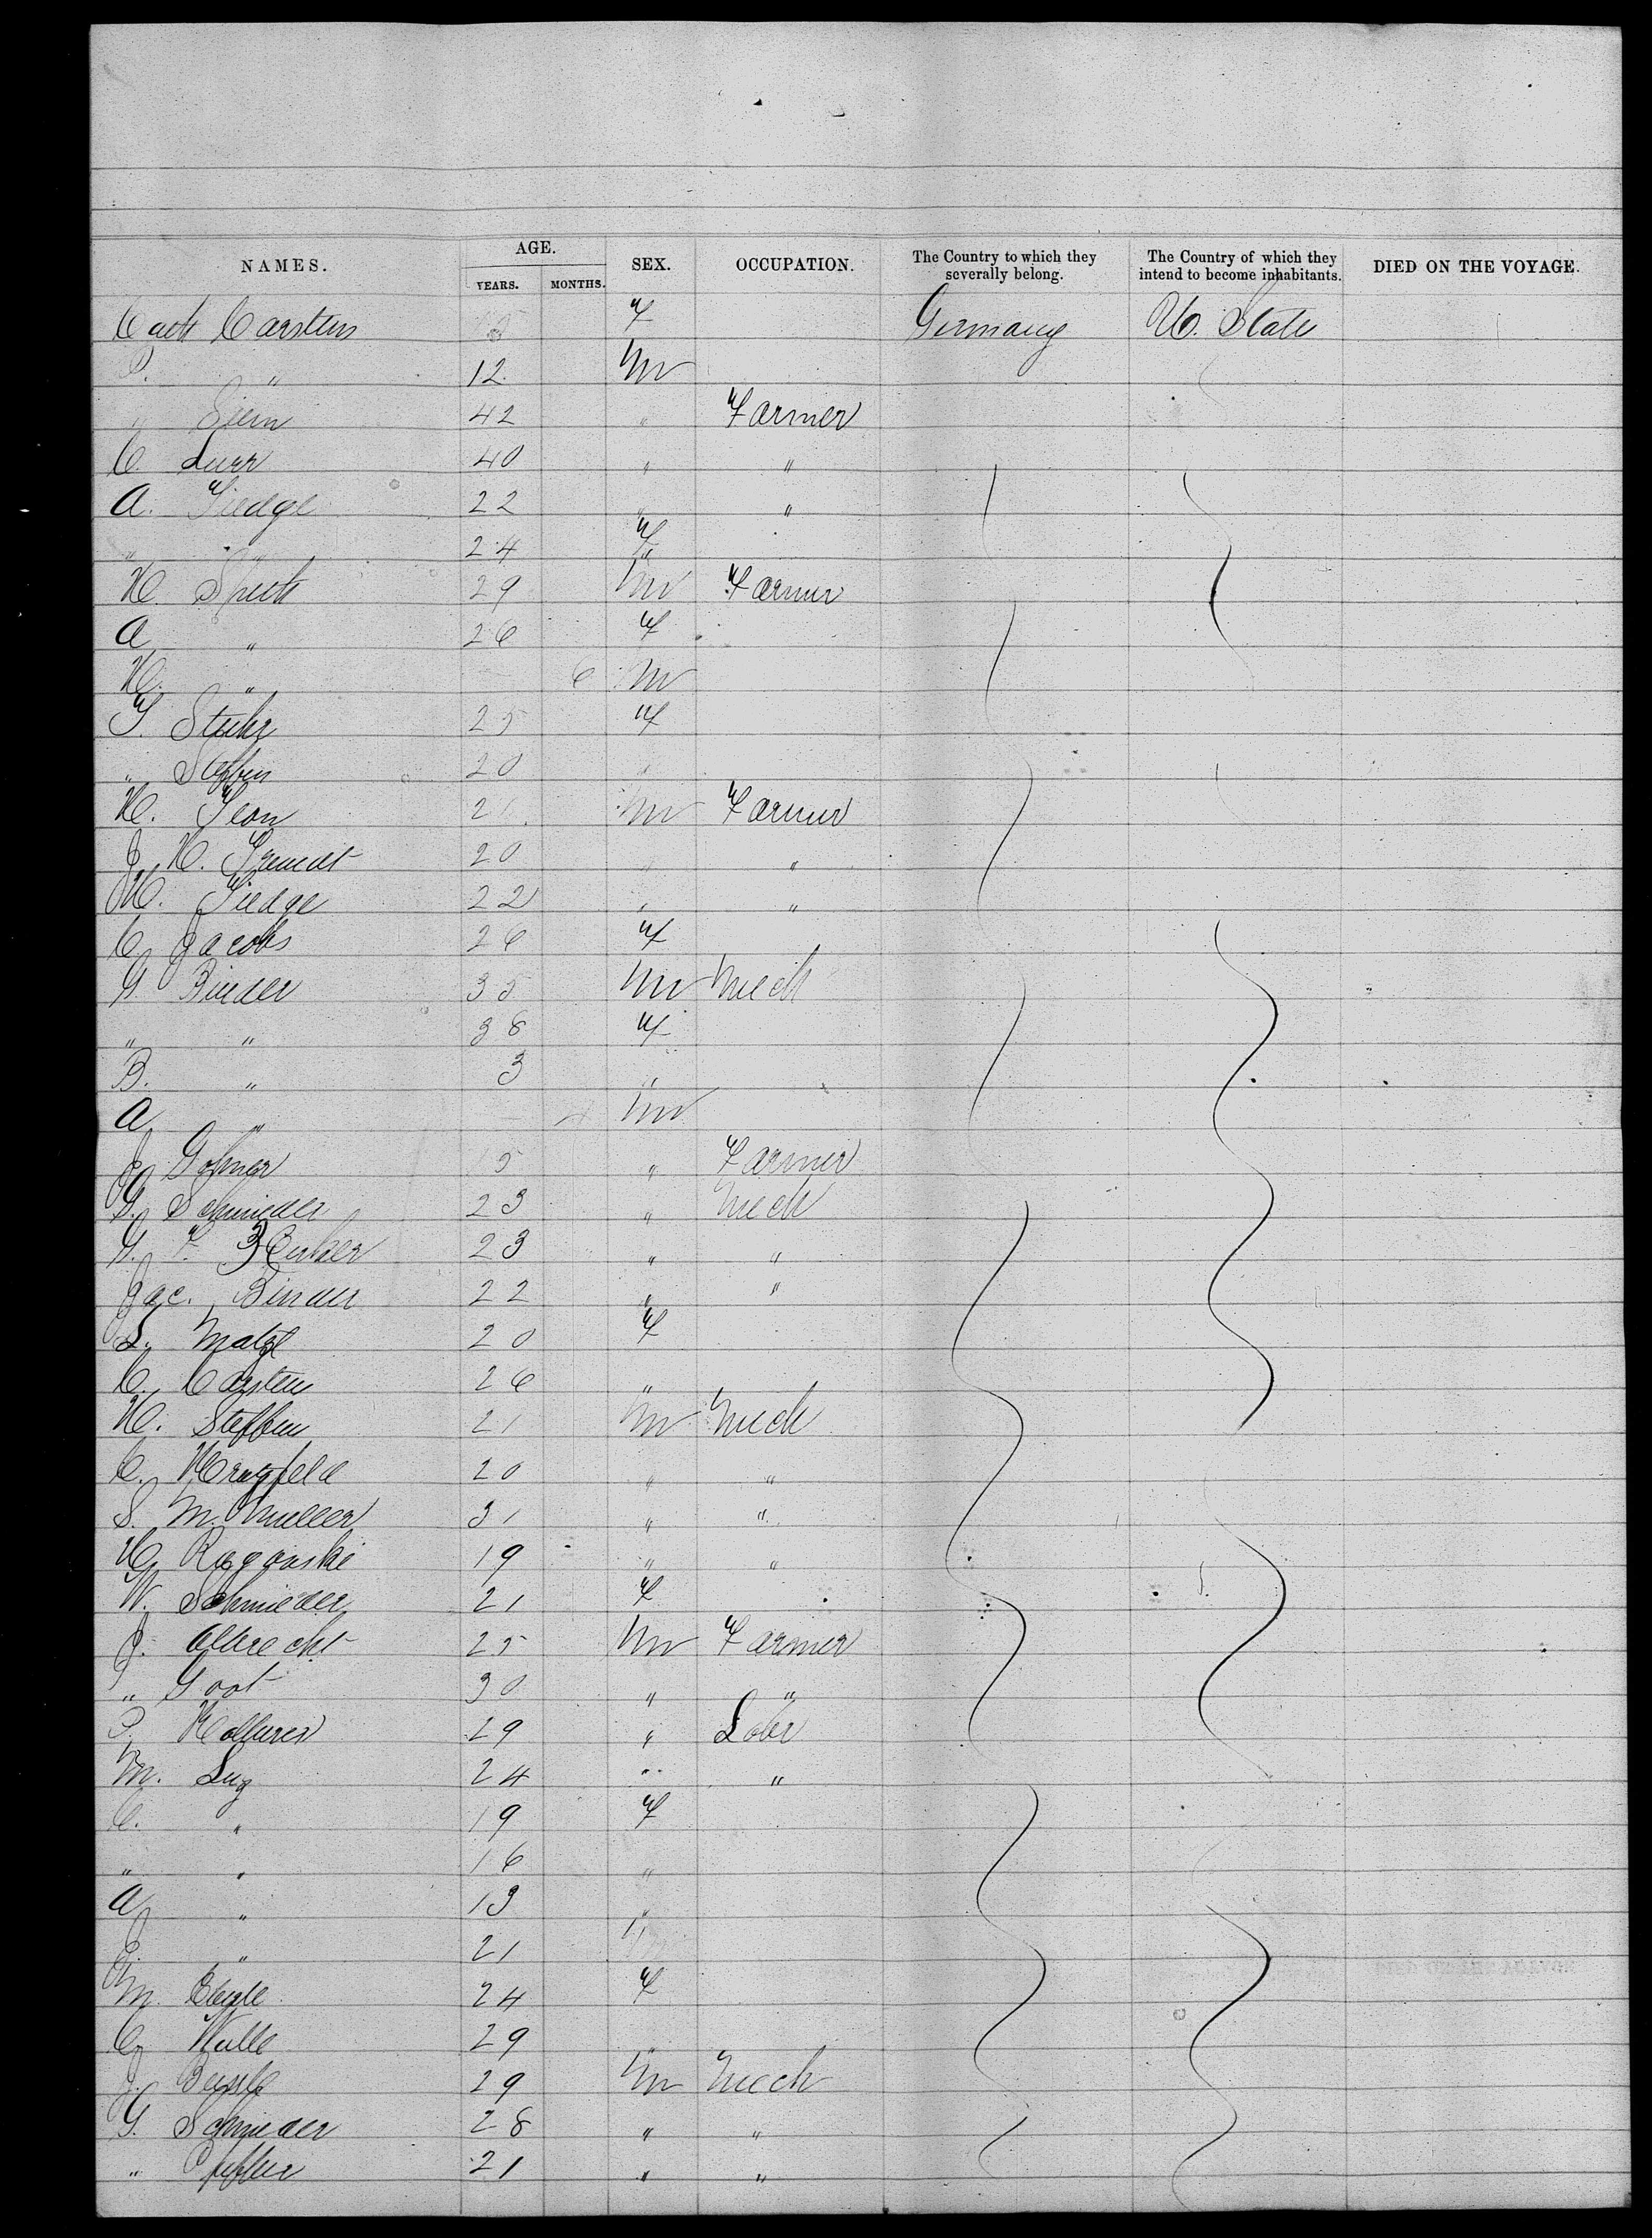 NAMES. AGE. YEARS. MONTHS. SEX. OCCUPATION. The Country to which they severally belong. The Country of which they intend to become inhabitants. DIED ON THE VOYAGE.
Cath Carstens F Germany U. State
P. " 12 M
" Siem 42 " Farmer
C. Lurr 40 " "
A. Tiedge 22 " "
" " 24 F
H. Speth 29 M Farmer
A " 26 F
H. " 6 M
T. Stuhr 25 F
" Steffen 20 "
H. Jeon 21 M Farmer
J. H. 20 " "
H. Tiedge 22 " "
C. Jacobs 26 F
G. Binder 35 M Mech
" " 38 F
B. " 3 "
A " M
J. 5 " Farmer
G. Schmieder 23 " Mech
G. F. 23 " "
Jac. Binder 22 " "
L. Matzl 20 F
C. Carsten 26 "
H. Steffen 21 M Mech
C. 20 " "
S. M. Muller 31 " "
H. Rogowski 19 " "
W. Schmieder 21 F
J. Albrecht 25 M Farmer
" Goot 30 " "
P. 29 " Labr
M. Lug 24 " "
C. " 19 F
" " 16 "
A " 13 "
J. " 21 M
M. 24 F
C. Walle 29 "
J. 29 M Mech
G. Schmieder 28 " "
" 21 " "